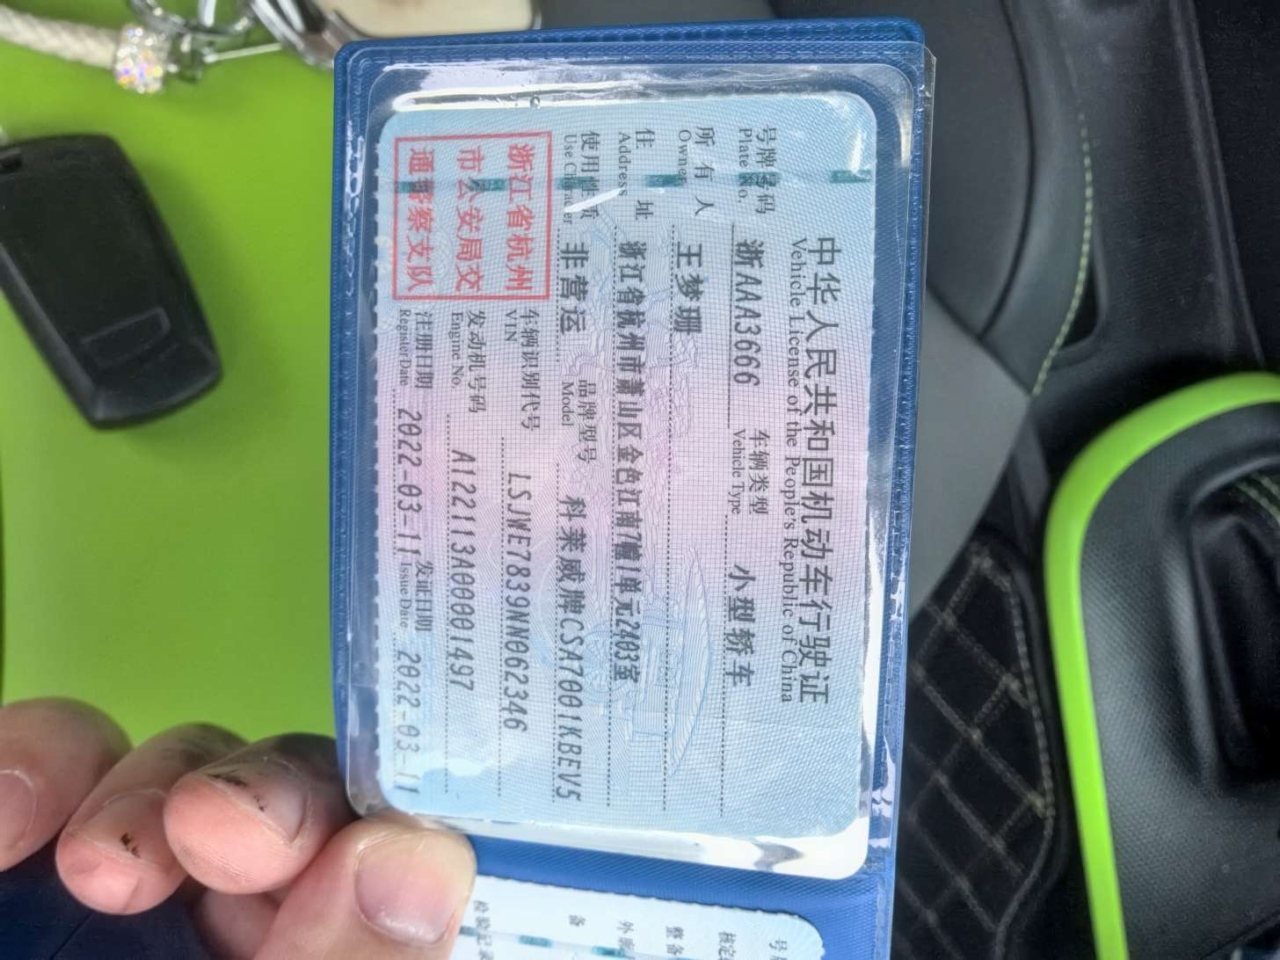 中华人民共和国机动车行驶证
Vehicle License of the People's Republic of China
号牌号码 浙AAA3666 车辆类型 小型轿车
Plate No. Vehicle Type
所有人 王梦珊
Owner
住址 浙江省杭州市萧山区金色江南7幢1单元2403室
Address
使用性质 非营运 品牌型号 科莱威牌CSA7001KBEV5
Use Character Model
浙江省杭州
市公安局交
通警察支队
车辆识别代号 LSJWE7839NN062346
VIN
发动机号码 A122113A00001497
Engine No.
注册日期 2022-03-11 发证日期 2022-03-11
Register Date Issue Date
号
核定
整备
外廓
备
检验记录